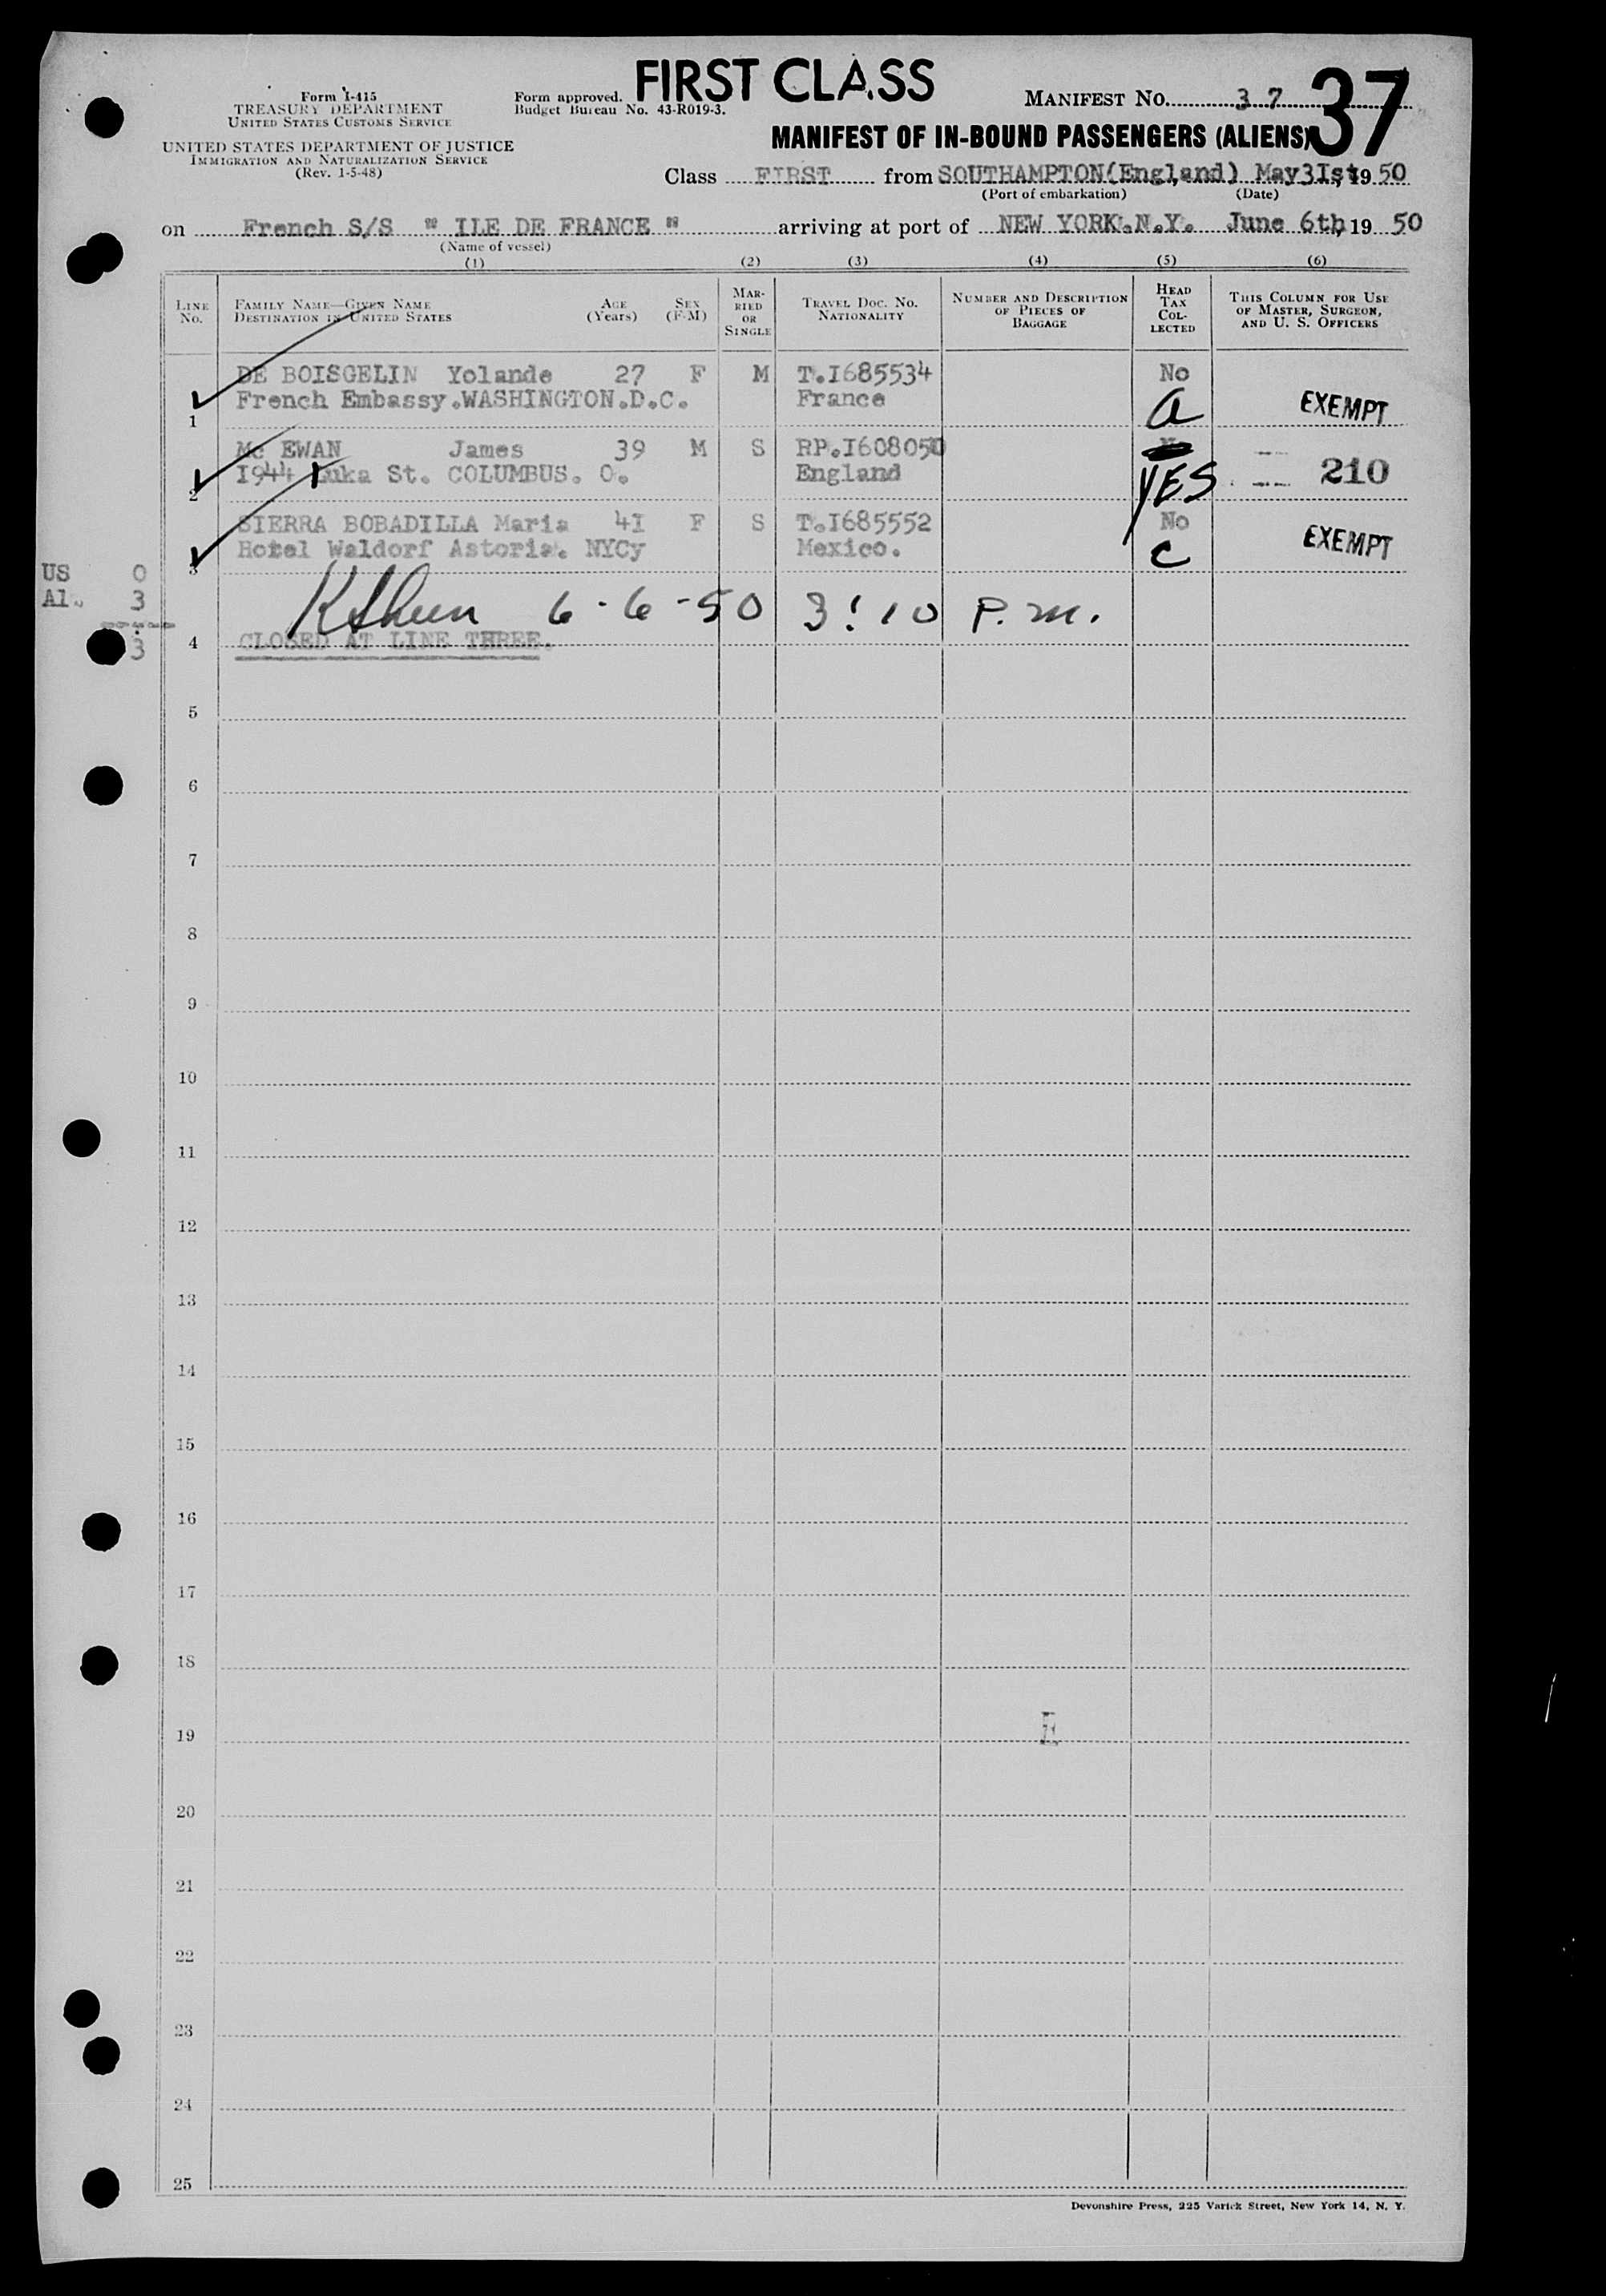 FIRST CLASS
Form I-415
TREASURY DEPARTMENT
UNITED STATES CUSTOMS SERVICE
UNITED STATES DEPARTMENT OF JUSTICE
IMMIGRATION AND NATURALIZATION SERVICE
(Rev. 1-5-48)
Form approved.
Budget Bureau No. 43-R019-3.
MANIFEST NO. 37
37
MANIFEST OF IN-BOUND PASSENGERS (ALIENS)
Class FIRST from SOUTHAMPTON(England) May 3Ist, 19 50
(Port of embarkation) (Date)
on French S/S " ILE DE FRANCE " arriving at port of NEW YORK.N.Y. June 6th, 19 50
(Name of vessel)
(1) (2) (3) (4) (5) (6)
LINE NO. FAMILY NAME—GIVEN NAME DESTINATION IN UNITED STATES AGE (Years) SEX (F-M) MARRIED OR SINGLE TRAVEL DOC. NO. NATIONALITY NUMBER AND DESCRIPTION OF PIECES OF BAGGAGE HEAD TAX COLLECTED THIS COLUMN FOR USE OF MASTER, SURGEON, AND U. S. OFFICERS
DE BOISGELIN Yolande 27 F M T.I685534 No
1 French Embassy.WASHINGTON.D.C. France a EXEMPT
Mc EWAN James 39 M S RP.I608050
2 I944 Luka St. COLUMBUS. O. England YES 210
SIERRA BOBADILLA Maria 4I F S T.I685552 No
3 Hotel Waldorf Astoria. NYCy Mexico. C EXEMPT
US 0
Al. 3
3
6-6-50 3:10 P.m.
4 CLOSED AT LINE THREE.
5
6
7
8
9
10
11
12
13
14
15
16
17
18
19
20
21
22
23
24
25
Devonshire Press, 225 Varick Street, New York 14, N. Y.